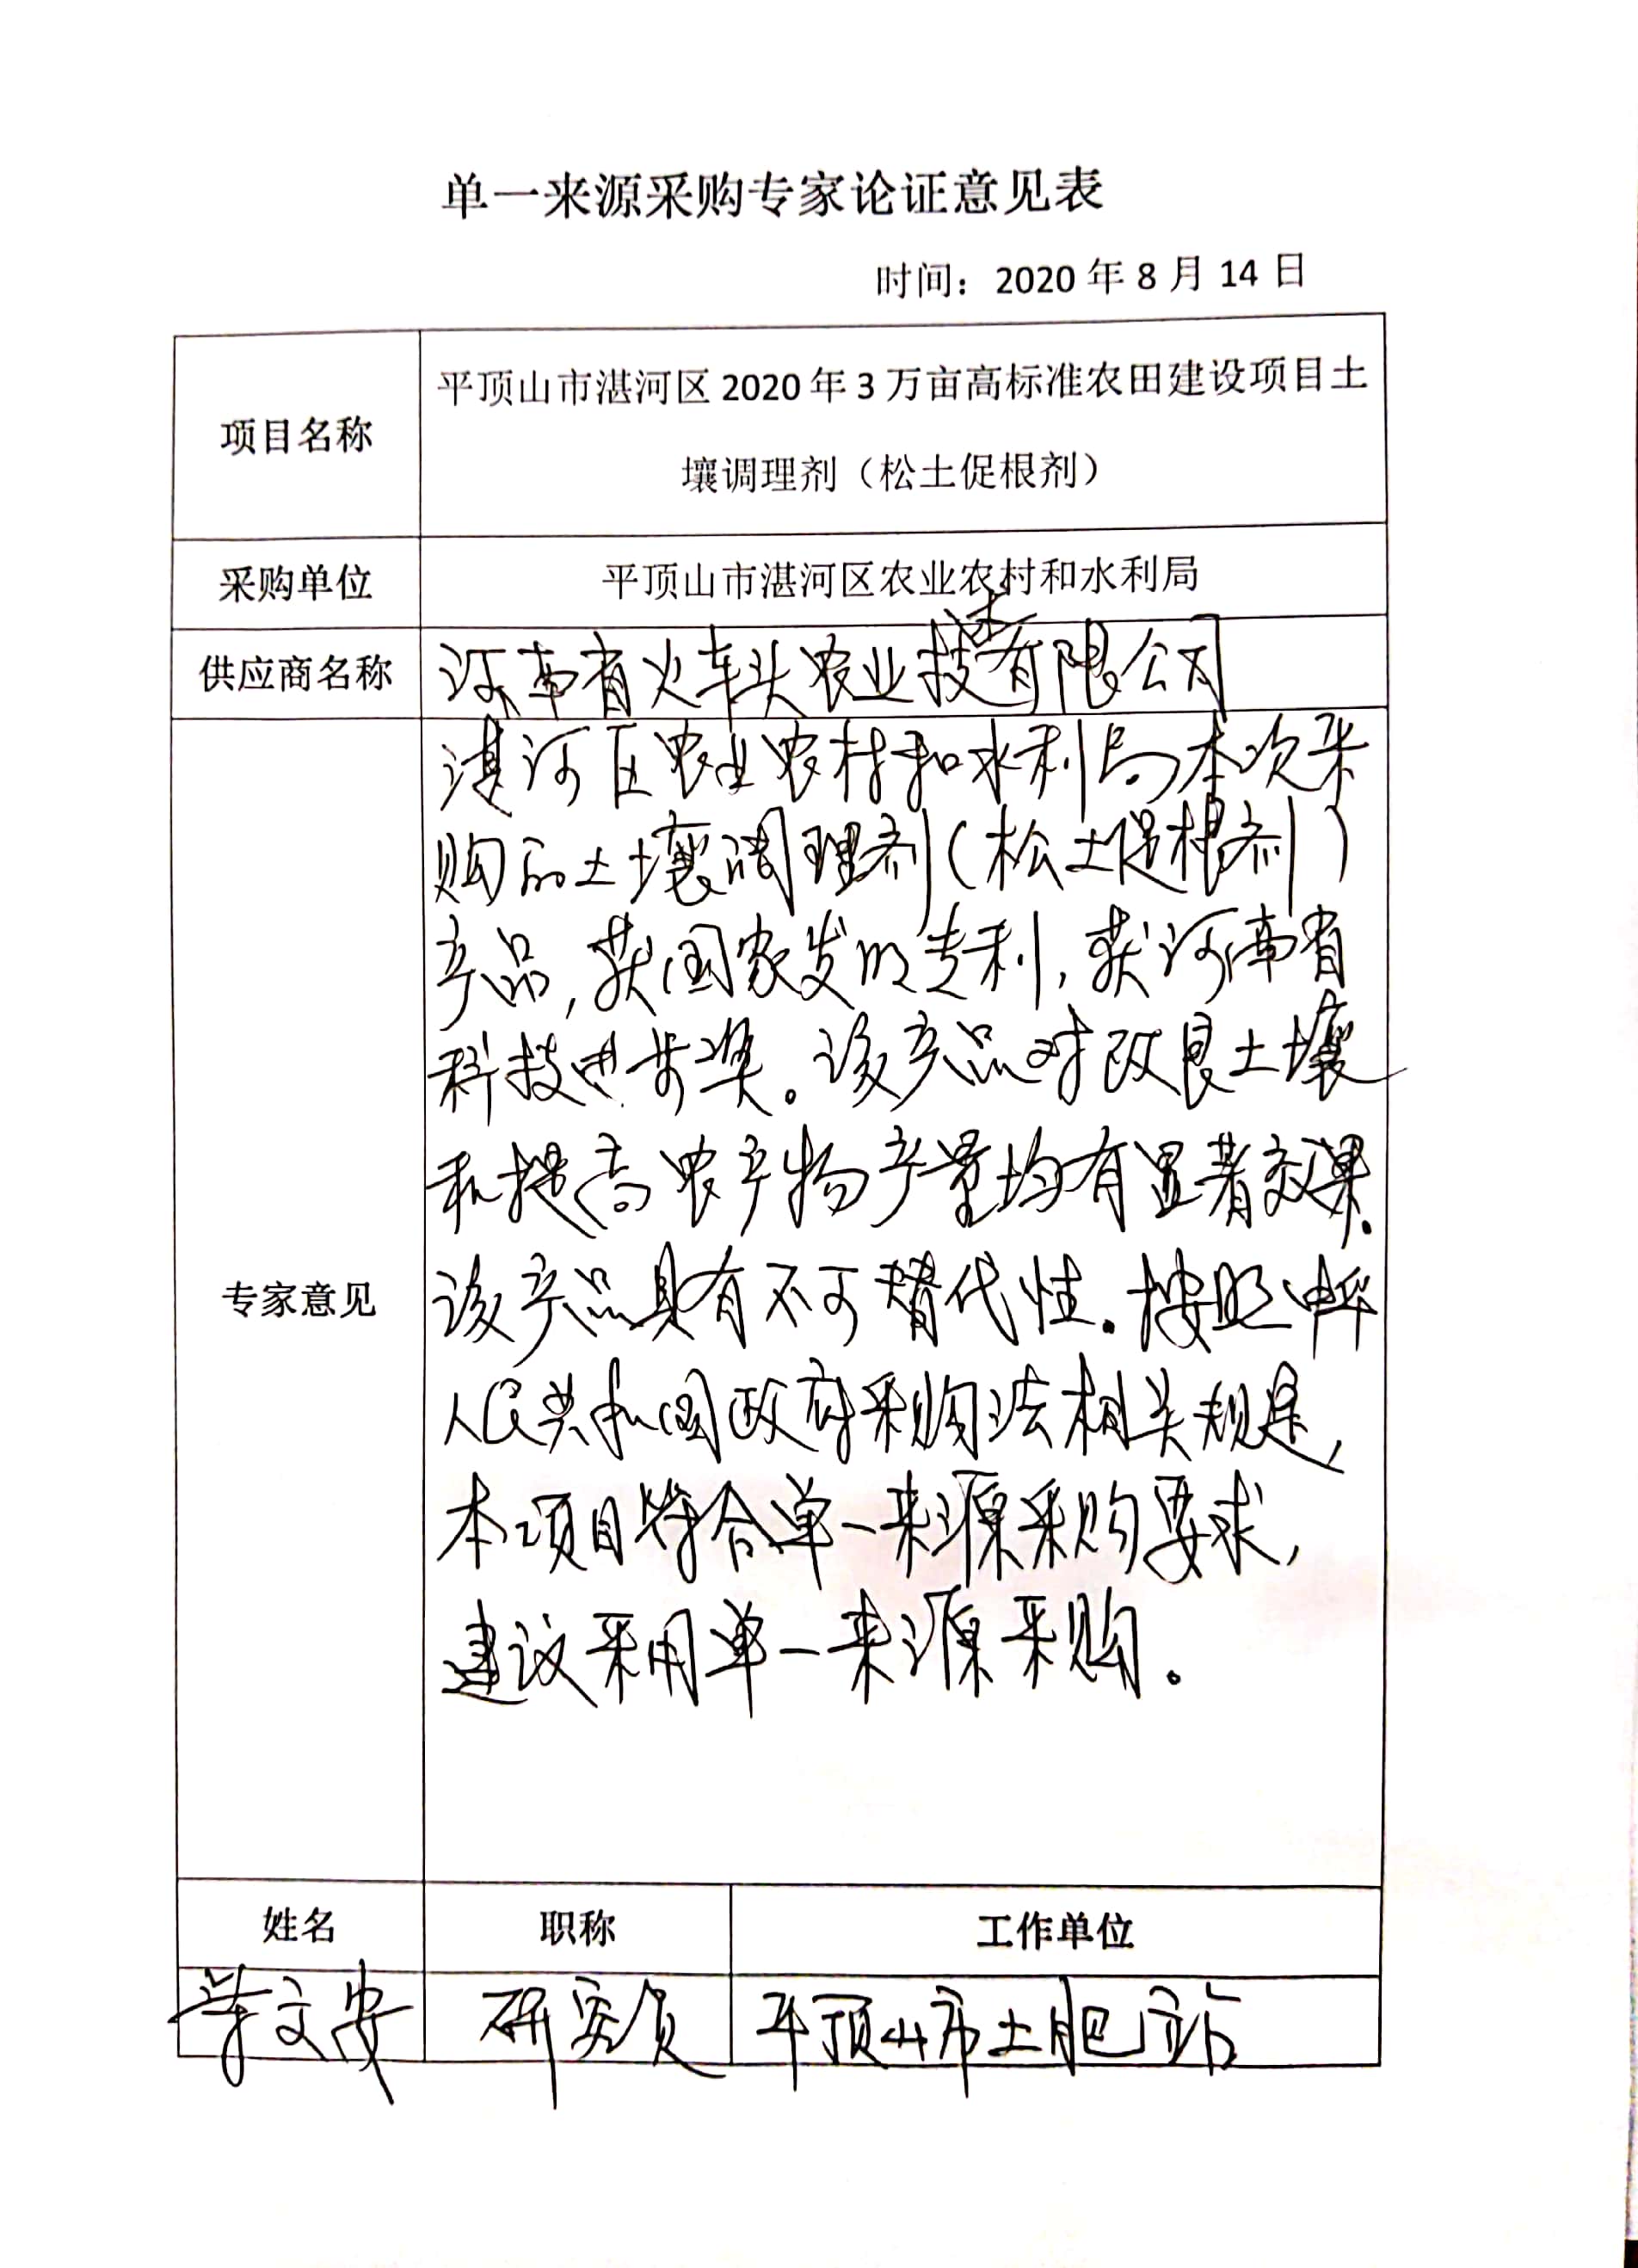 单一来源采购专家论证意见表
时间：2020 年 8 月 14 日
项目名称
平顶山市湛河区 2020 年 3 万亩高标准农田建设项目土
壤调理剂（松土促根剂）
采购单位
平顶山市湛河区农业农村和水利局
供应商名称
河南省火车头农业技术有限公司
专家意见
湛河区农业农村和水利局本次采
购的土壤调理剂（松土促根剂）
产品，获国家发明专利，获河南省
科技进步奖。该产品对改良土壤
和提高农产物产量均有显著效果。
该产品具有不可替代性。按照中华
人民共和国政府采购法相关规定，
本项目符合单一来源采购要求，
建议采用单一来源采购。
姓名
职称
工作单位
文安
研究员
平顶山市土肥站